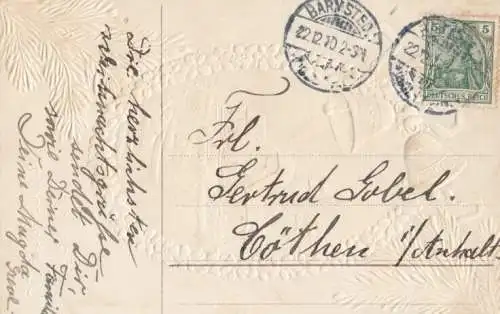 BARNSTE
22.12.10.2-3N
5 5
DEUTSCHES REICH
Frl.
Gertrud Gobel.
Cöthen i/Anhalt
Die herzlichsten
Weihnachtsgrüße
sendet Dir
sowie Deiner Familie
Deine Magda